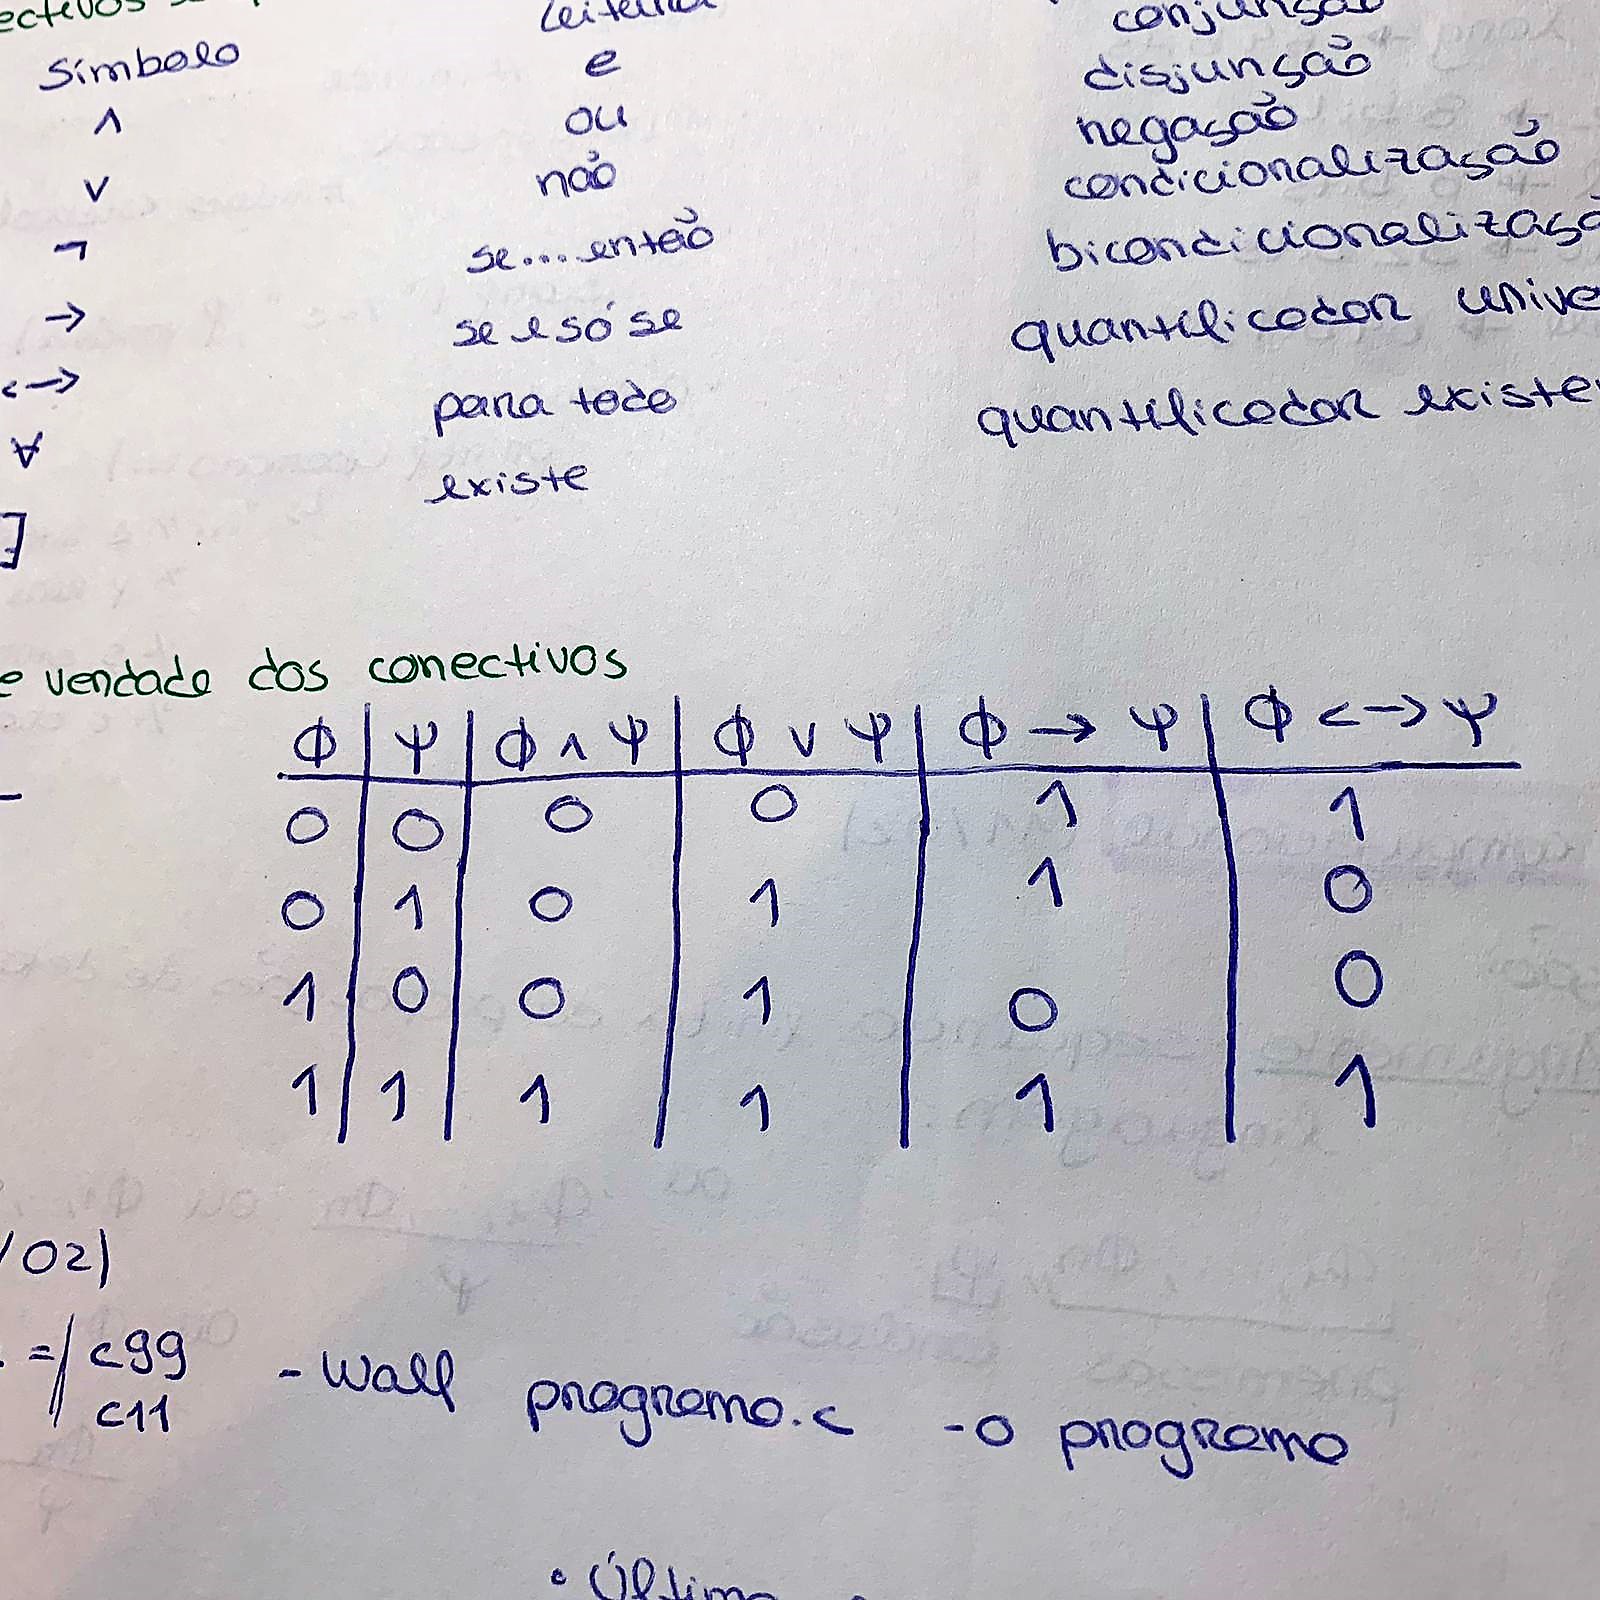 Leitura conjunção
Símbolo e disjunção
∧ ou negação
∨ não condicionalização
¬ se....então bicondicionalização
→ se e só se quantificador unive
<-> para todo quantificador existe
∀ existe
∃
e verdade dos conectivos
Φ Ψ Φ ∧ Ψ Φ ∨ Ψ Φ → Ψ Φ <-> Ψ
0 0 0 0 1 1
0 1 0 1 1 0
1 0 0 1 0 0
1 1 1 1 1 1
/02)
= c99 -Wall programa.c -o programa
c11
• Última